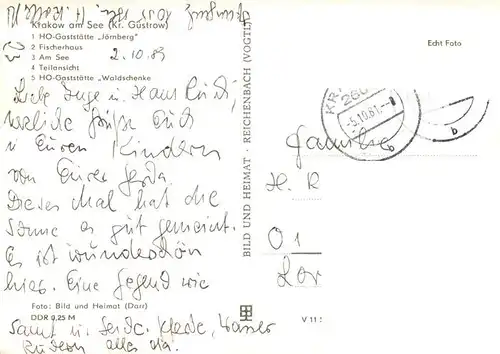 Krakow am See (Kr. Güstrow)
1 HO-Gaststätte „Jörnberg"
2 Fischerhaus
3 Am See
4 Teilansicht
5 HO-Gaststätte „Waldschenke
2. 10. 89
Liebe Inge u. Hans
herzliche Grüße Euch
u Euren Kindern
von Eurer Gerda
Dieses Mal hat die
Sonne es gut gemeint.
Es ist wunderschön
hier. Eine Gegend wie
Samt u. Seide. Pferde, Wasser
Rudern alles da.
Foto: Bild und Heimat (Darr)
DDR 0,25 M
BILD UND HEIMAT · REICHENBACH (VOGTL)
Echt Foto
KR
-5.10.81.-
b
b
Familie
H. R
O 1
Lor
V 11